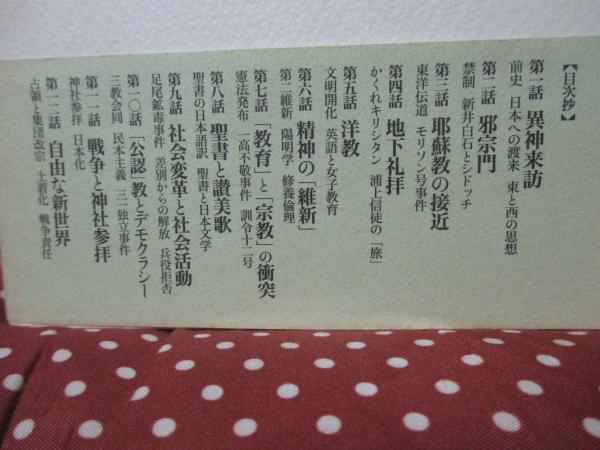 【目次抄】
第一話 異神来訪
前史 日本への渡来 東と西の思想
第二話 邪宗門
禁制 新井白石とシドッチ
第三話 耶蘇教の接近
東洋伝道 モリソン号事件
第四話 地下礼拝
かくれキリシタン 浦上信徒の「旅」
第五話 洋教
文明開化 英語と女子教育
第六話 精神の「維新」
第二維新 陽明学 修養倫理
第七話 「教育」と「宗教」の衝突
憲法発布 一高不敬事件 訓令十二号
第八話 聖書と讃美歌
聖書の日本語訳 聖書と日本文学
第九話 社会変革と社会活動
足尾鉱毒事件 差別からの解放 兵役拒否
第一〇話 「公認」教とデモクラシー
三教会同 民本主義 三一独立事件
第一一話 戦争と神社参拝
神社参拝 日本化
第一二話 自由な新世界
占領と集団改宗 土着化 戦争責任